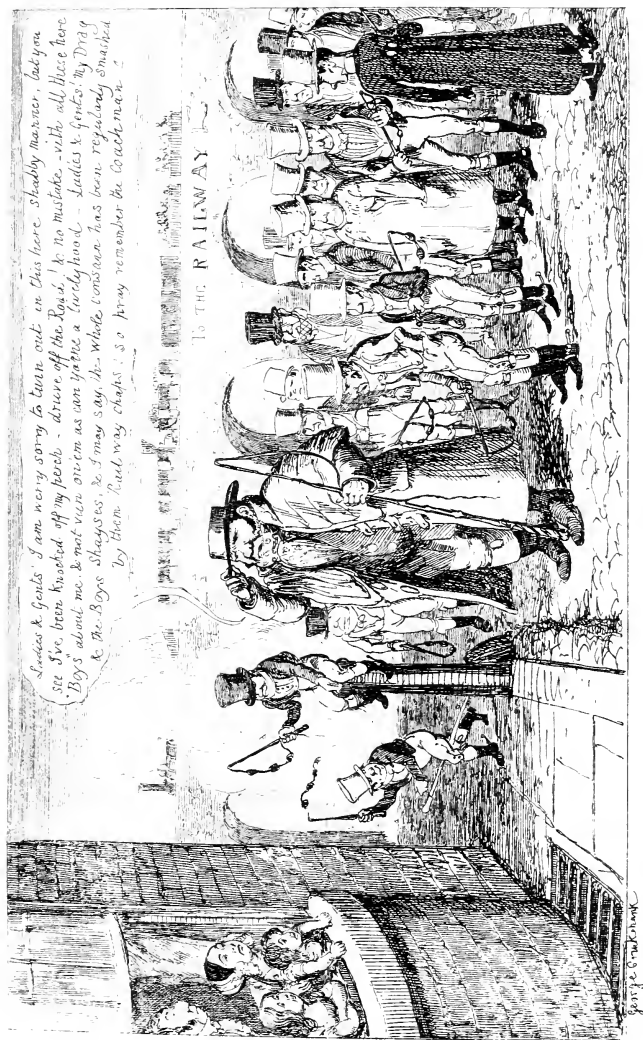 Ladies & Gents' I am wery sorry to turn out in this here shabby manner, but you
see I've been knocked off my perch - driven off the Road! & no mistake - with all these here
Boys about me & not vun on'em as can yarne a livelyhood - Ladies & Gents. My Drag
& the Boys Shayses, & I may say, the whole consarn has been regularly smashed
by them Railway chaps, so pray remember the Coachman!
TO THE RAILWAY
George Cruikshank